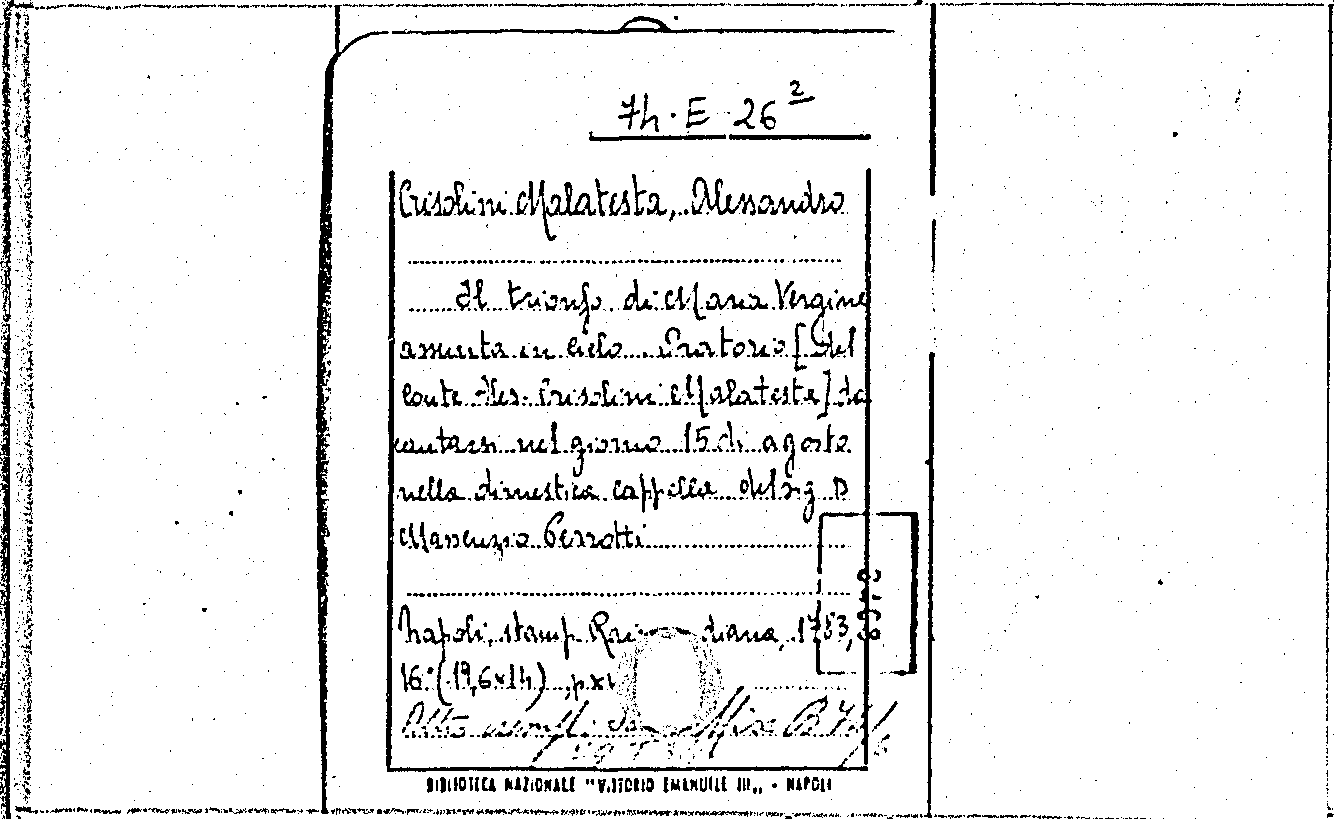 7h. E 26²
Crisolini Malatesta, Alessandro
Il trionfo di Maria Vergine
assunta in cielo. Oratorio [del
conte Ales. Crisolini Malatesta] da
cantarsi nel giorno 15 di agosto
nella dimestica cappella del sig D
Perrotti
Napoli, stamp. diana, 1753,
16° (19,6x14), p.
BIBLIOTECA NAZIONALE "VITTORIO EMANUELE III„ - NAPOLI